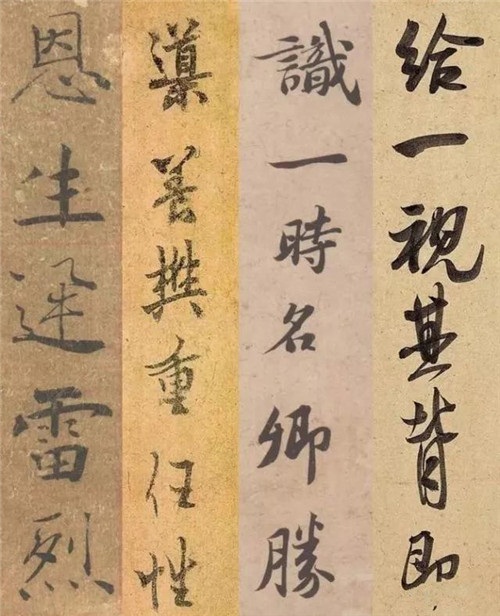 給一視其背即
識一時名卿勝
渠善撰重任性
恩生雷烈